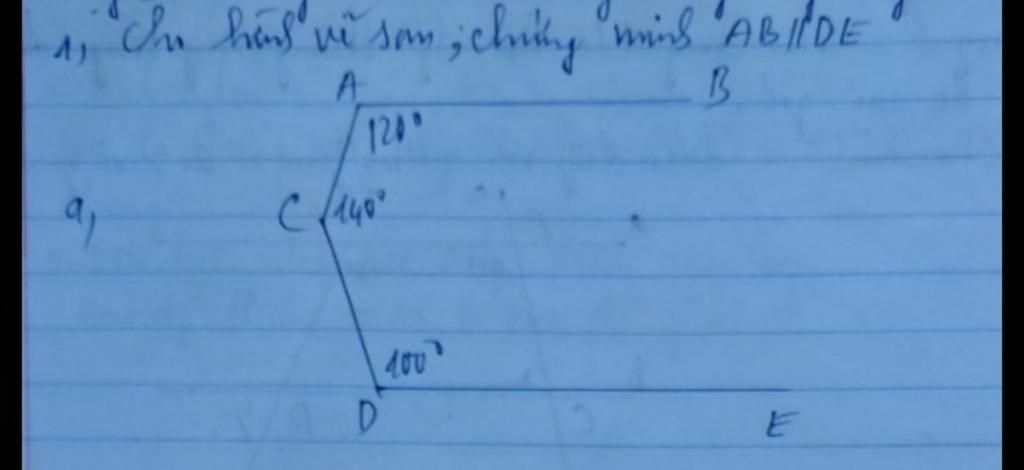 1, Cho hình vẽ sau; chứng minh AB//DE
A
B
120°
a,
C
140°
100°
D
E